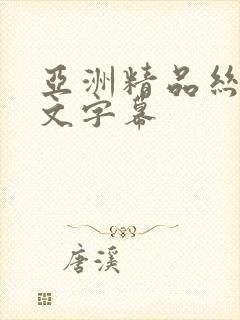 亞洲精品絲
文字幕
唐溪